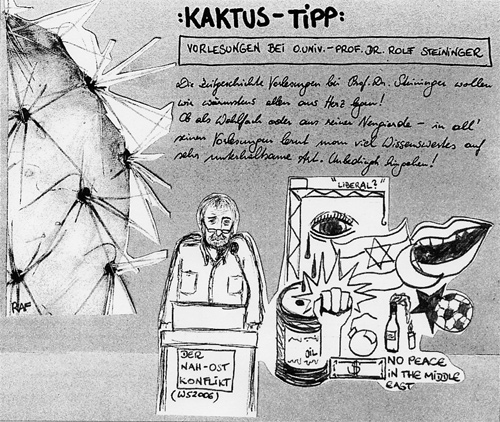 :KAKTUS-TiPP:
VORLESUNGEN BEI O.UNIV.-PROF. DR. ROLF STEININGER
Die Zeitgeschichte Vorlesungen bei Prof. Dr. Steininger wollen
wir wärmstens allen ans Herz legen!
Ob als Wahlfach oder aus reiner Neugierde - in all'
seinen Vorlesungen lernt man viel Wissenswertes auf
sehr unterhaltsame Art. Unbedingt hingehen!
"LIBERAL?"
RAF
ÖL
$
DER
NAH-OST
KONFLIKT
(WS2006)
NO PEACE
IN THE MIDDLE
EAST